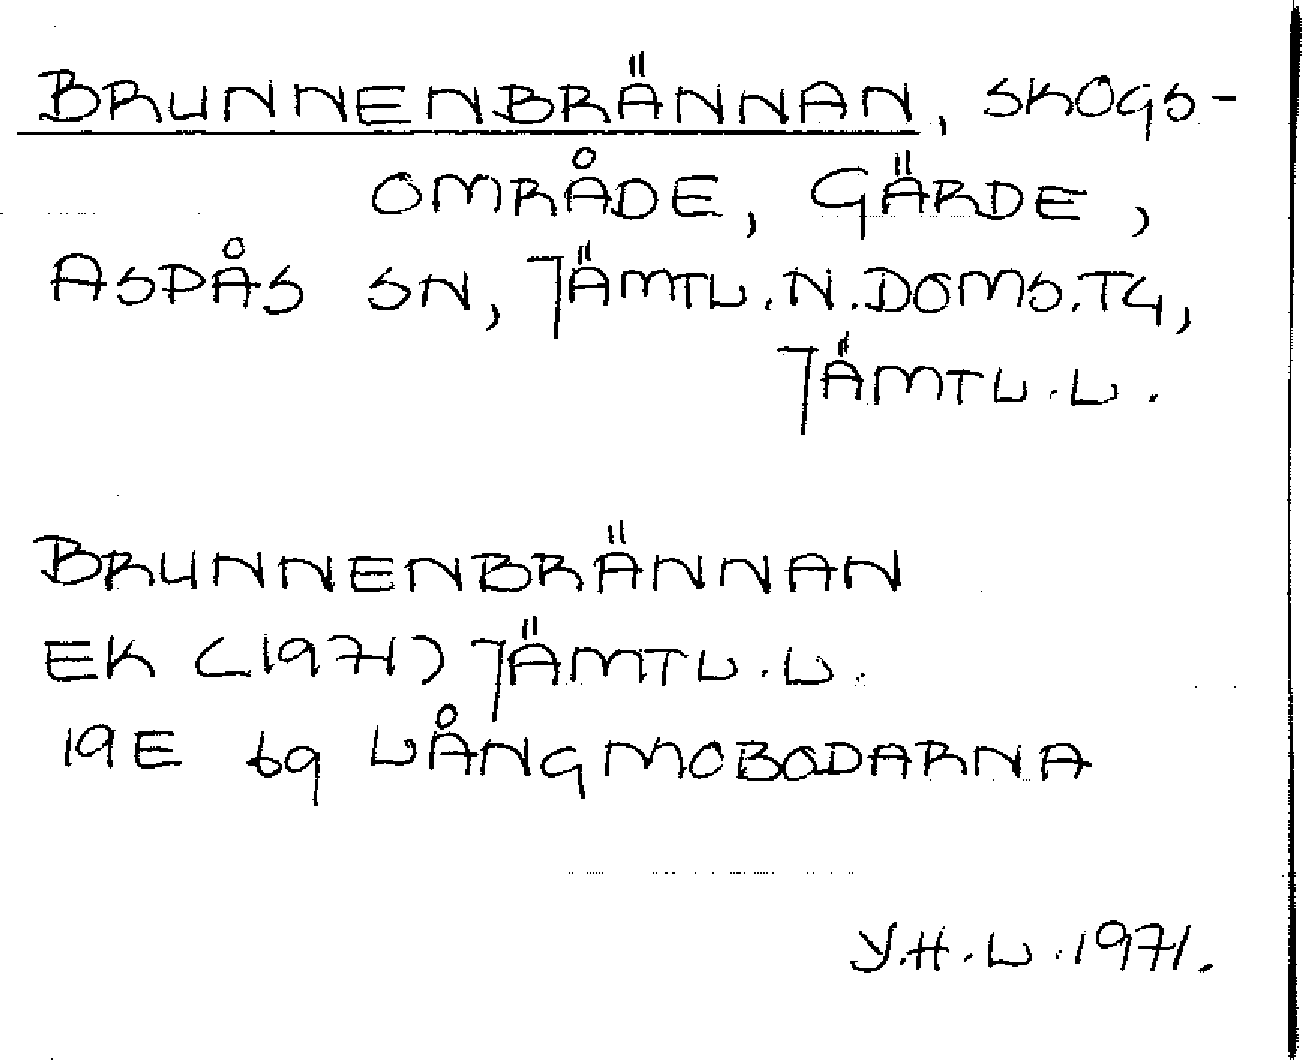 BRUNNENBRÄNNAN, SKOGS-
OMRÅDE, GÄRDE,
ASPÅS SN, JÄMTL.N.DOMS.TG,
JÄMTL.L.
BRUNNENBRÄNNAN
EK (1971) JÄMTL.L.
19E 69 LÅNGMOBODARNA
Y.H.L.1971.